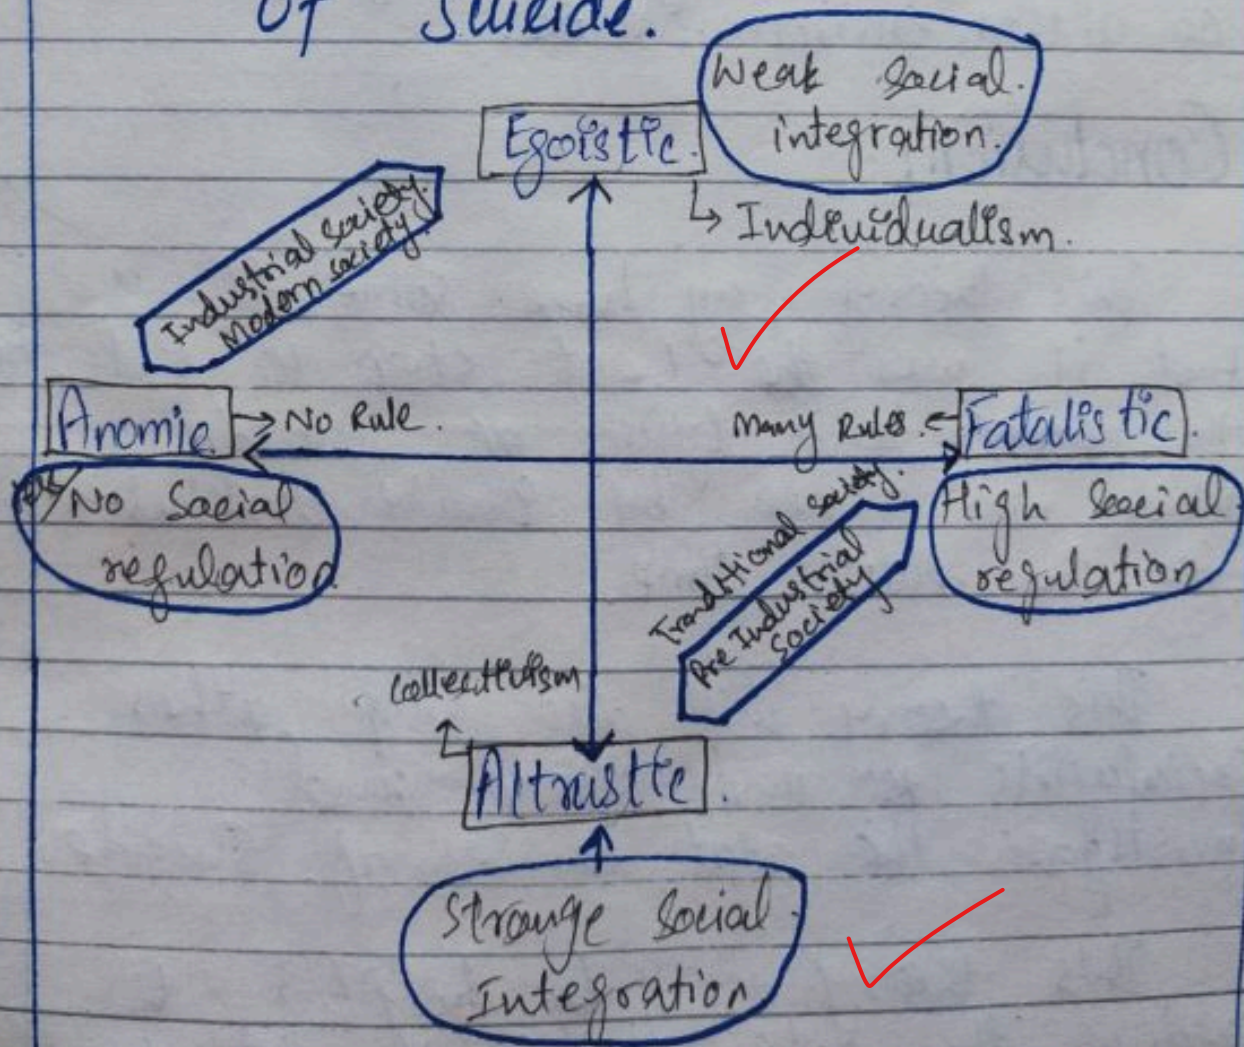 of Suicide.
Weak social.
integration.
Egoistic.
Individualism.
Industrial society.
Modern society
Anomie
No Rule.
Many Rules.
Fatalistic.
No Social
regulation
High social
regulation
Traditional society.
Pre Industrial
Society
collectivism
Altrustic
Strange Social
Integration